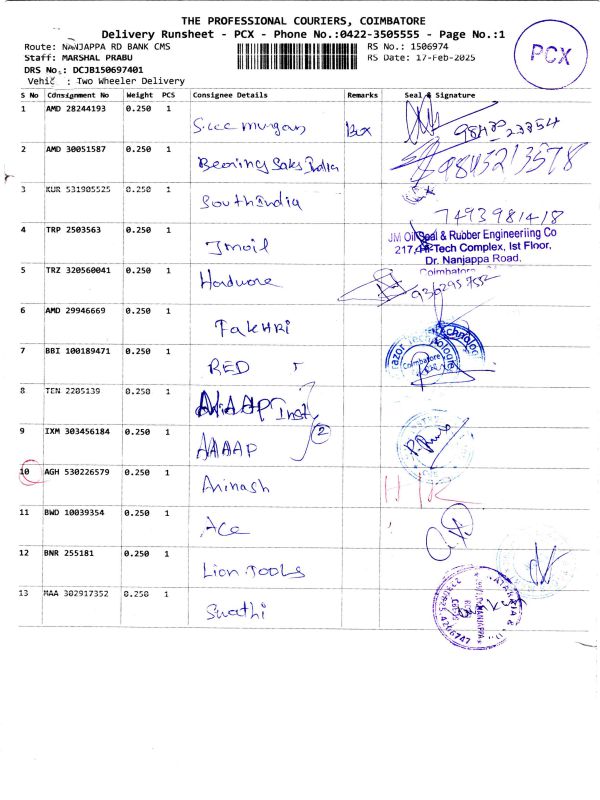 THE PROFESSIONAL COURIERS, COIMBATORE
Delivery Runsheet - PCX - Phone No.:0422-3505555 - Page No.:1
Route: NANJAPPA RD BANK CMS RS No.: 1506974
Staff: MARSHAL PRABU RS Date: 17-Feb-2025
DRS No.: DCJB150697401
Vehic : Two Wheeler Delivery
PCX
S No Consignment No Weight PCS Consignee Details Remarks Seal & Signature
1 AMD 28244193 0.250 1 Murugan Box
2 AMD 30051587 0.250 1 Bearing Sales India 9843213578
3 KUR 531905525 0.250 1 South India 7493981418
4 TRP 2503563 0.250 1 Jmoil
JM Oil Seal & Rubber Engineeriing Co
217, Hi-Tech Complex, Ist Floor,
Dr. Nanjappa Road,
Coimbatore
5 TRZ 320560041 0.250 1 Hardware
6 AMD 29946669 0.250 1 FAKHRI
7 BBI 100189471 0.250 1 RED
Coimbatore
8 TEN 2205139 0.250 1 AAAAP Inst
2
9 IXM 303456184 0.250 1 AAAAP
10 AGH 530226579 0.250 1 Avinash
11 BWD 10039354 0.250 1 Ace
12 BNR 255181 0.250 1 Lion TOOLS
13 MAA 302917352 0.250 1 Swathi